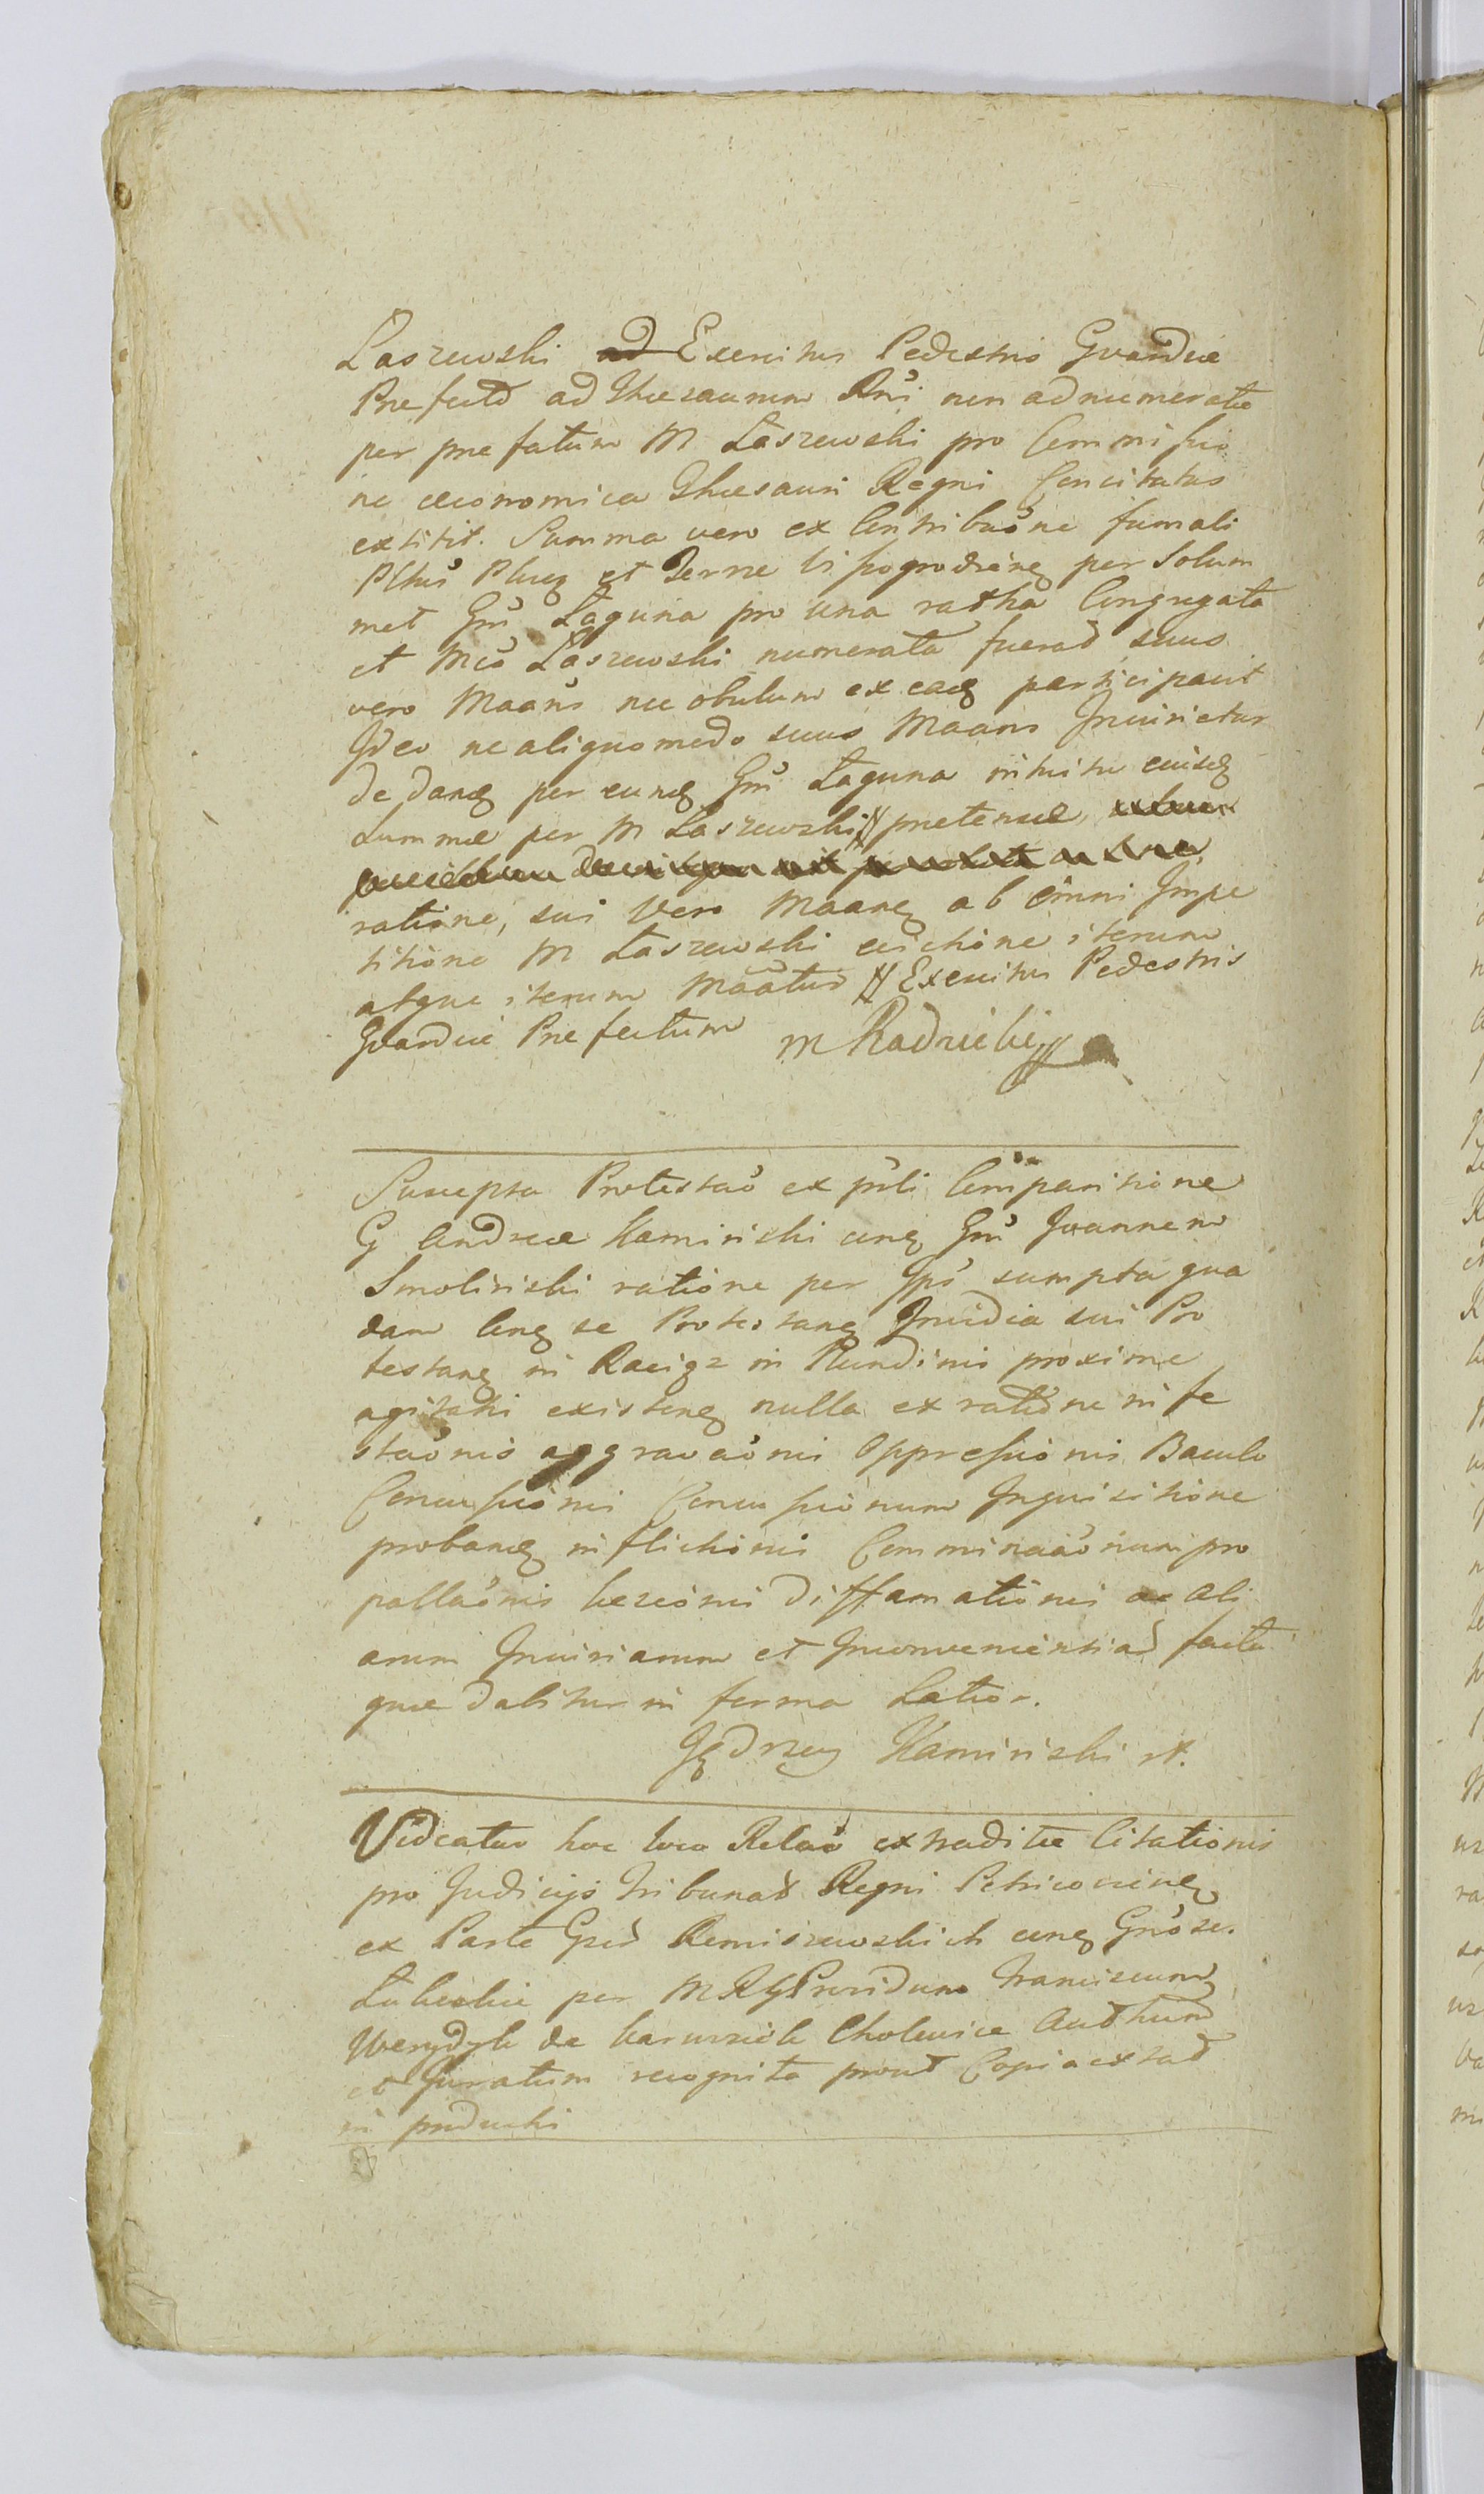 Laszewski ad Exercitus Pedestris Gvardiæ
Præfectꝺ ad Thesaurum Rni non adnumeratæ
per præfatum M Laszewski pro Commissio
ne œconomica Thesauri Regni Concitatus
extitit. Summa vero ex Contribuõne fumali
et Terræ per Solum
met Gñ Łaguna pro una ratha Congregata
et Mco Laszewski numerata fuerat suus
vero Maans nec obulum ex eadɋ participavit
Ideo ne aliquo modo suus Maans Inurietur
de danɋ per eunɋ Gñ Łaguna intuitu eiusdɋ
summæ per M Laszewski # pretensæ,
ratione, sui Vero Maanɋ ab omni Impe
titione M Laszewski evictione iterum
atque iterum Maatur # Exercitus Pedestris
Gvardiæ Præfectum M Radnicki
Suscepta Protestaõ ex pñli Comparitione
G Andreæ Kamiński conɋ Gñ Joannem
Smoliński ratione per Ips sumpta qua
dam conɋ se Protestanɋ Invidia sui Pro
testanɋ in Raciąz in Nundinis proxime
agitatis existenɋ nulla ex ratione infe
staõnis aggravaõnis Oppressionis Baculo
Concussionis Concussionum Inquisitione
probanɋ inflictionis Comminaõnum pro
pallaõnis læsionis Diffamationis ac ali
arum Iniuriarum et Inconvenientiaꝺ facta
quæ dabitur in forma Latior.
Jędrzey Kamiński
Videatur hoc loco Relaõ extraditæ Citationis
pro Judicijs Tribunał Regni Petricovienɋ
ex Parte Gsd Remiszewskich conɋ Gnose.
per M RG Providum Franciscum
de Chołewice Authum
et Juratum recognita prout Copia extat
in productis